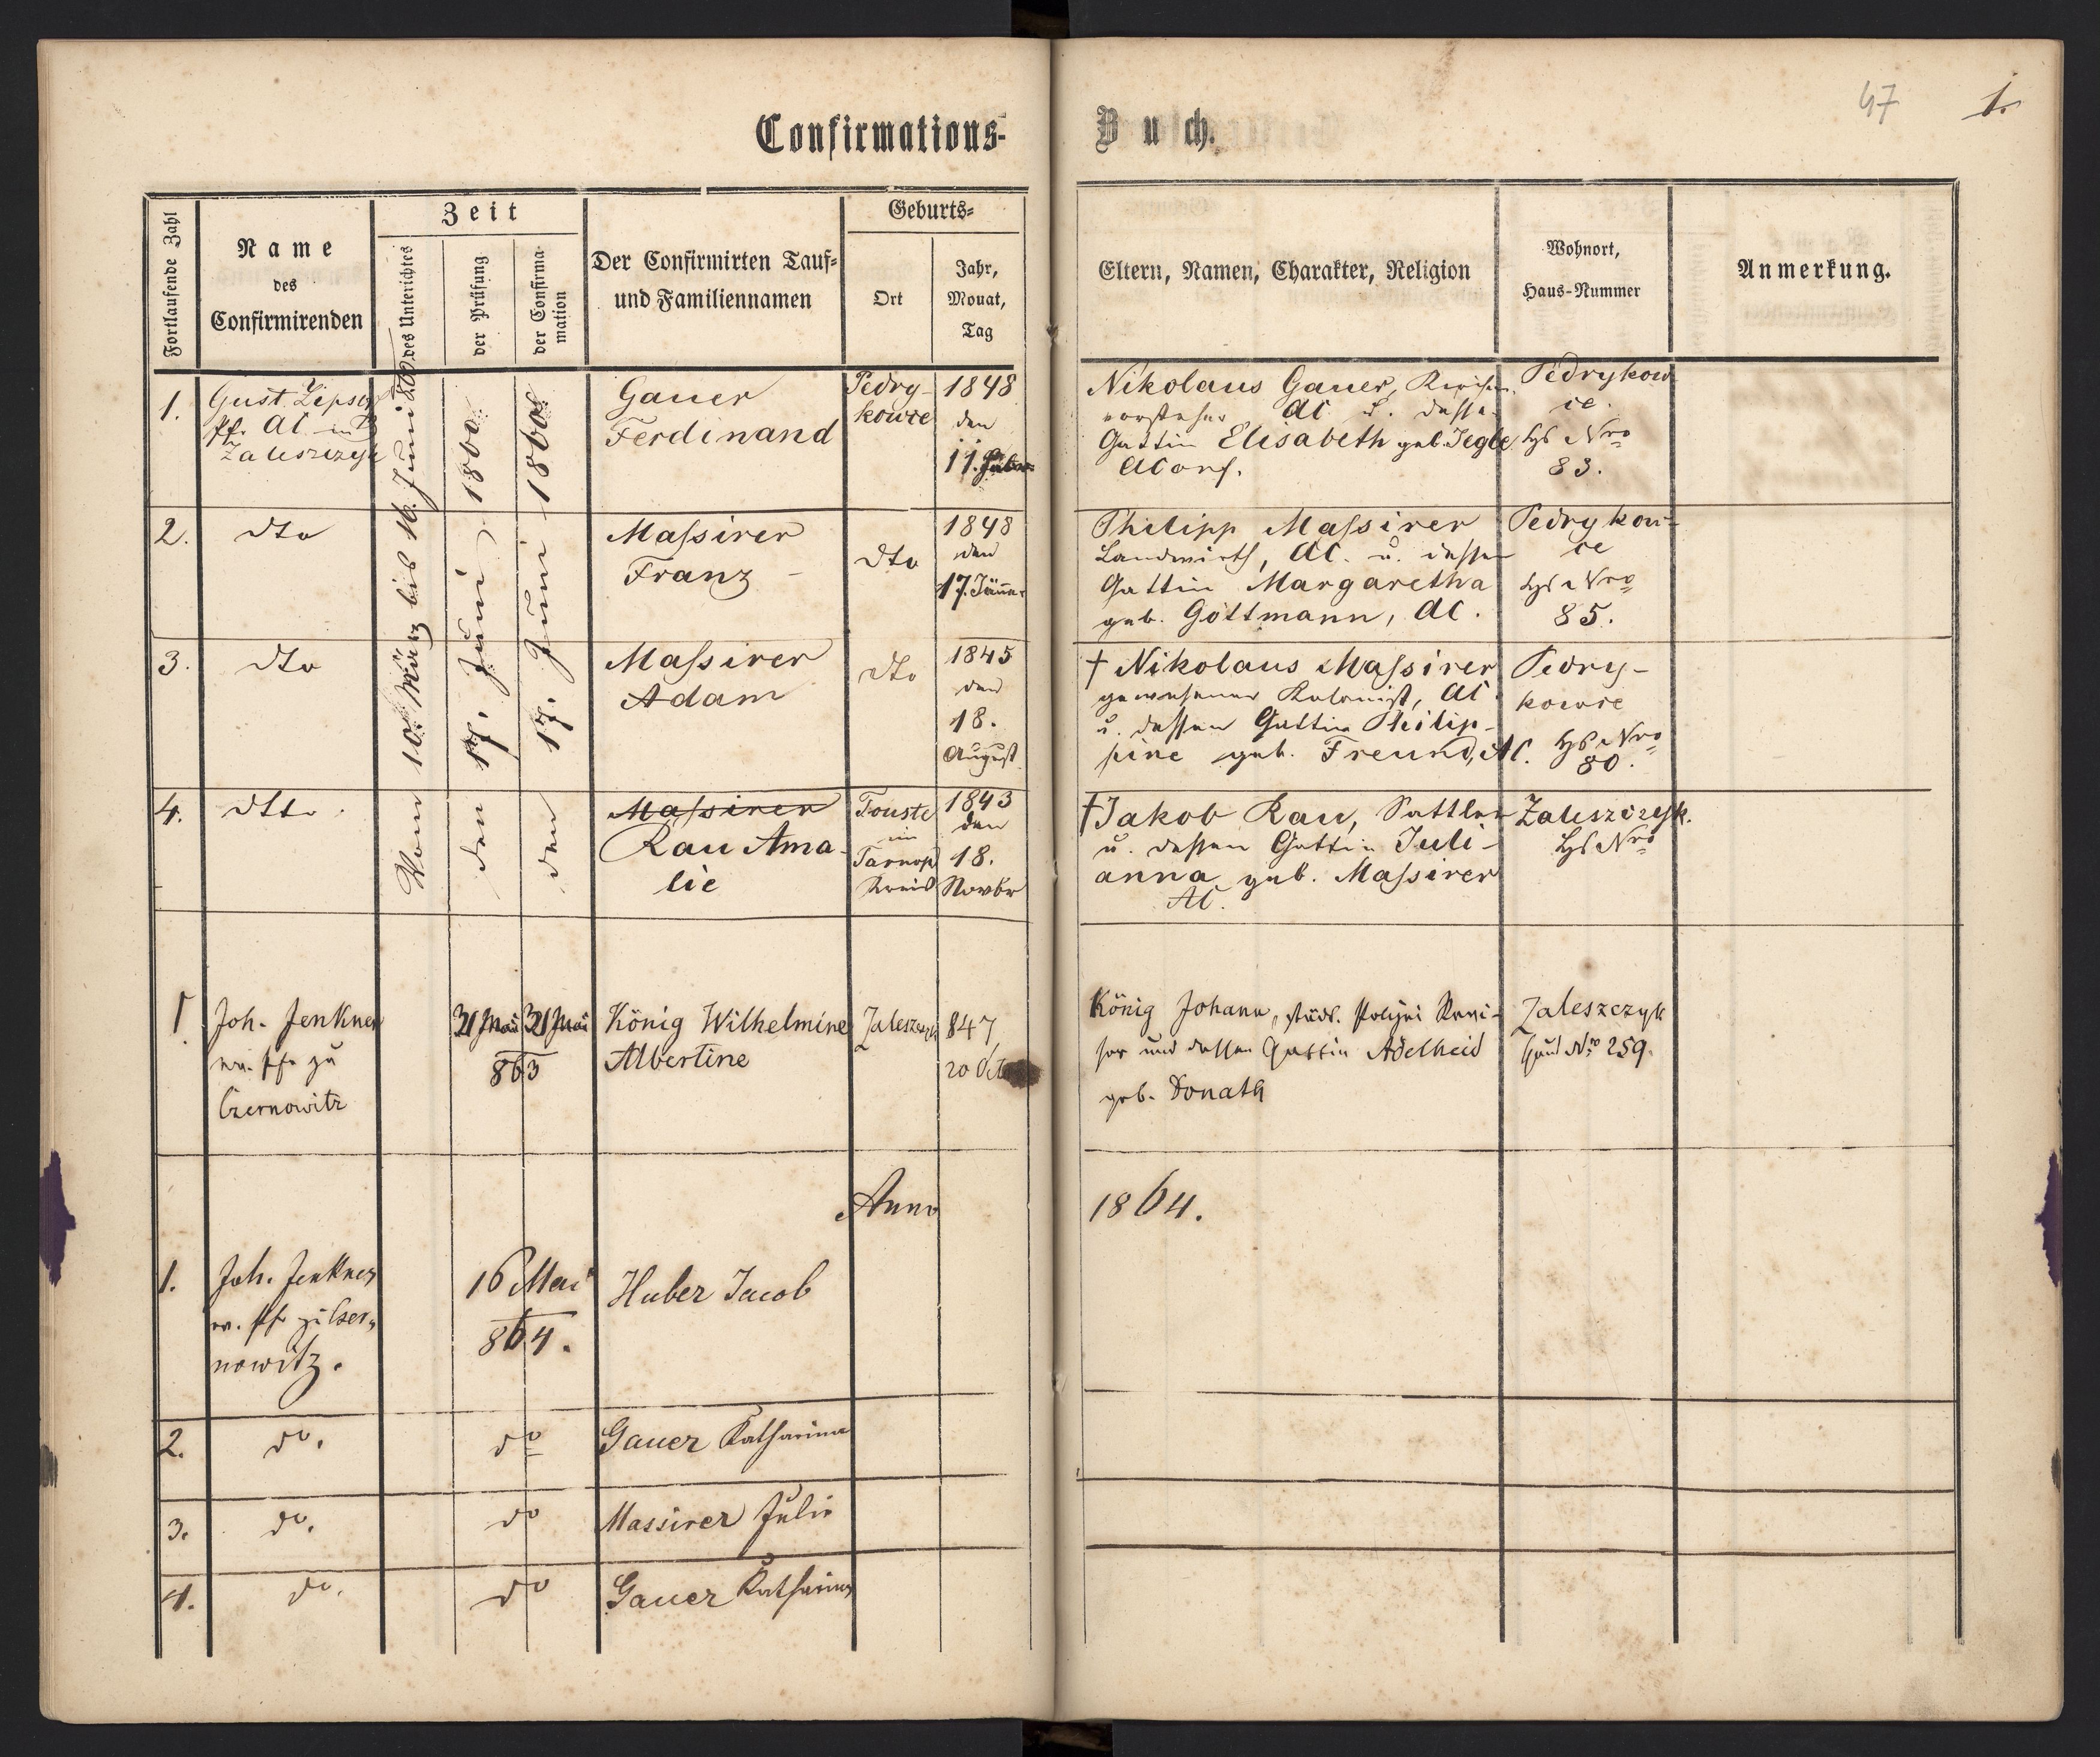 47 1.
Confirmations-
Buch.
Fortlaufende Zahl
Name
des
Confirmirenden
Zeit
des Unterichtes
der Prüfung
der Confirma-
mation
Der Confirmirten Tauf-
und Familiennamen
Geburts-
Ort
Jahr,
Monat,
Tag
Eltern, Namen, Charakter, Religion
Wohnort,
Haus-Nummer
Anmerkung.
Vom 10. März bis 16. Juni 1860
den 17. Juni 1860
den 17. Juni 1860
1.
Gust. Zipser
Pfr. AC in
Zaleszczyk
Gauer
Ferdinand
Pedry-
kowce
1848
den
11.
Nikolaus Gauer, Kirchen
vorsteher AC u. dessen
Gattin Elisabeth geb. Jegle
AConf.
Pedrykow
ce.
Hs Nro
83.
2.
dto
Massirer
Franz
dto
1848
den
17. Jänner
Philipp Massirer
Landwirth, AC. u. dessen
Gattin Margaretha
geb. Gottmann, AC.
Pedrykow-
ce
Hs Nro
85.
3.
dto
Massirer
Adam
dto
1845
den
18.
August
† Nikolaus Massirer
gewesener Kolonist, AC
u. dessen Gattin Philip-
pine geb. Freund, AC.
Pedry-
kowce
Hs Nro
80.
4.
dtto
Massirer
Rau Ama-
lie
Touste
im
Tarnop
Kreis
1843
den
18.
Novbr
† Jakob Rau, Sattler
u. dessen Gattin Juli-
anna geb. Massirer
AC.
Zaleszczyk.
Hs Nro
1
Joh. Jenkner
ev. Pfr zu
Czernowitz
31 Mai 31 Mai
863
König Wilhelmine
Albertine
Zaleszczyk
847
20 Oct
König Johann, städt. Polizei Revi-
sor und dessen Gattin Adelheid
geb. Donath
Zaleszczyk
Haus Nro 259.
Anno 1864.
1.
Joh. Jenkner
ev. Pfr zu Czer-
nowitz.
16 Mai
864.
Huber Jacob
2.
do.
do
Gauer Katharina
3.
do.
do
Massirer Julie
4.
do.
do
Gauer Katharina